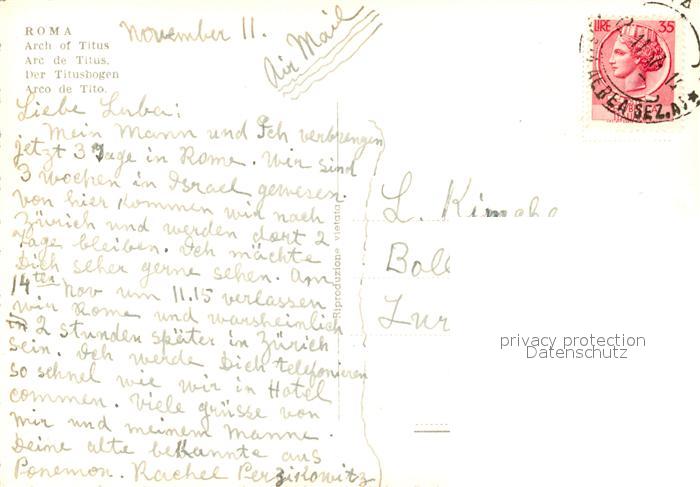 ROMA
Arch of Titus
Arc de Titus.
Der Titusbogen
Arco de Tito.
November 11.
Air Mail
LIRE 35
AEREA SEZ. A
Liebe Luba:
Mein Mann und Ich verbrengen
jetzt 3 Tage in Rome. Wir sind
3 wochen in Israel gewesen.
von hier kommen wir nach
Zürich und werden dort 2
Tage bleiben. Ich mächte
Dich seher gerne sehen. Am
14ten Nov um 11.15 verlassen
wir Rome und warsheinlich
in 2 stunden später in Zürich
sein. Ich werde Dich telefonieren
so schnel wie wir in Hotel
commen. viele grüsse von
mir und meinem Manne.
Deine alte bekannte aus
Ponemon. Rachel Perzikowitz
Riproduzione vietata
L.
privacy protection
Datenschutz